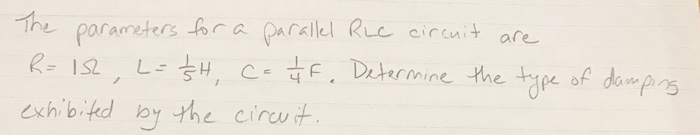 The parameters for a parallel RLC circuit are
R = 1Ω, L = 1/5 H, C = 1/4 F. Determine the type of damping
exhibited by the circuit.